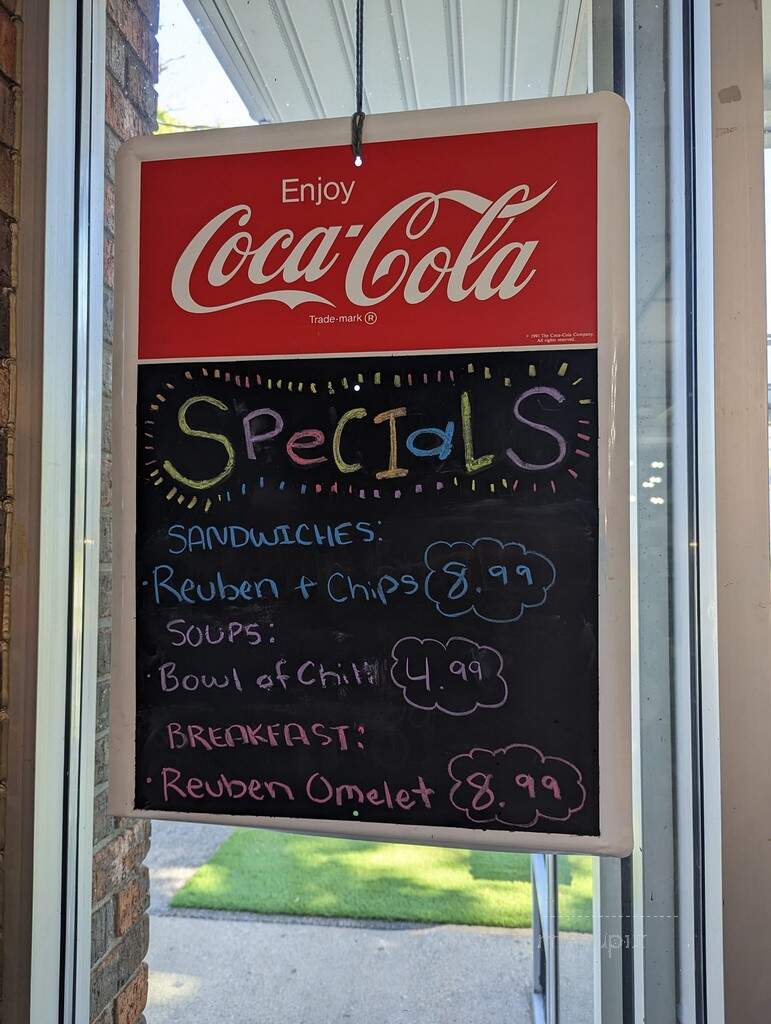 Enjoy
Coca-Cola
Trade-mark ®
© 1991 The Coca-Cola Company.
All rights reserved.
SPeCIaLS
SANDWICHES:
·Reuben + Chips 8.99
SOUPS:
·Bowl of Chili 4.99
BREAKFAST:
·Reuben Omelet 8.99